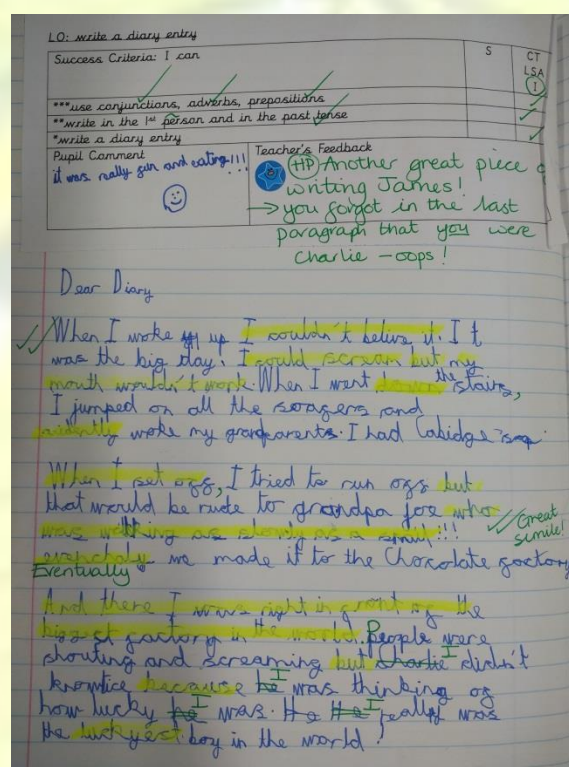 LO: write a diary entry
Success Criteria: I can
S
CT
LSA
I
***use conjunctions, adverbs, prepositions
**write in the 1st person and in the past tense
*write a diary entry
Pupil Comment
it was really fun and eating!!!
Teacher's Feedback
HP Another great piece o
writing James!
→ you forgot in the last
paragraph that you were
Charlie - oops!
Dear Diary
When I woke up I couldn't belive it. It
was the big day. I could scream but my
mouth wouldn't work. When I went down the stairs,
I jumped on all the and
woke my grandparents. I had Cabidge
When I set off, I tried to run off but
that would be rude to grandpa Joe who
was walking as slowly as a snail!!!
Great
simile!
we made it to the Chocolate factory
Eventually
And there I was right in front of the
biggest factory in the world. People were
shouting and screaming but Charlie I didn't
knowtice because he I was thinking of
how lucky he I was. He I really was
the luckyest boy in the world!